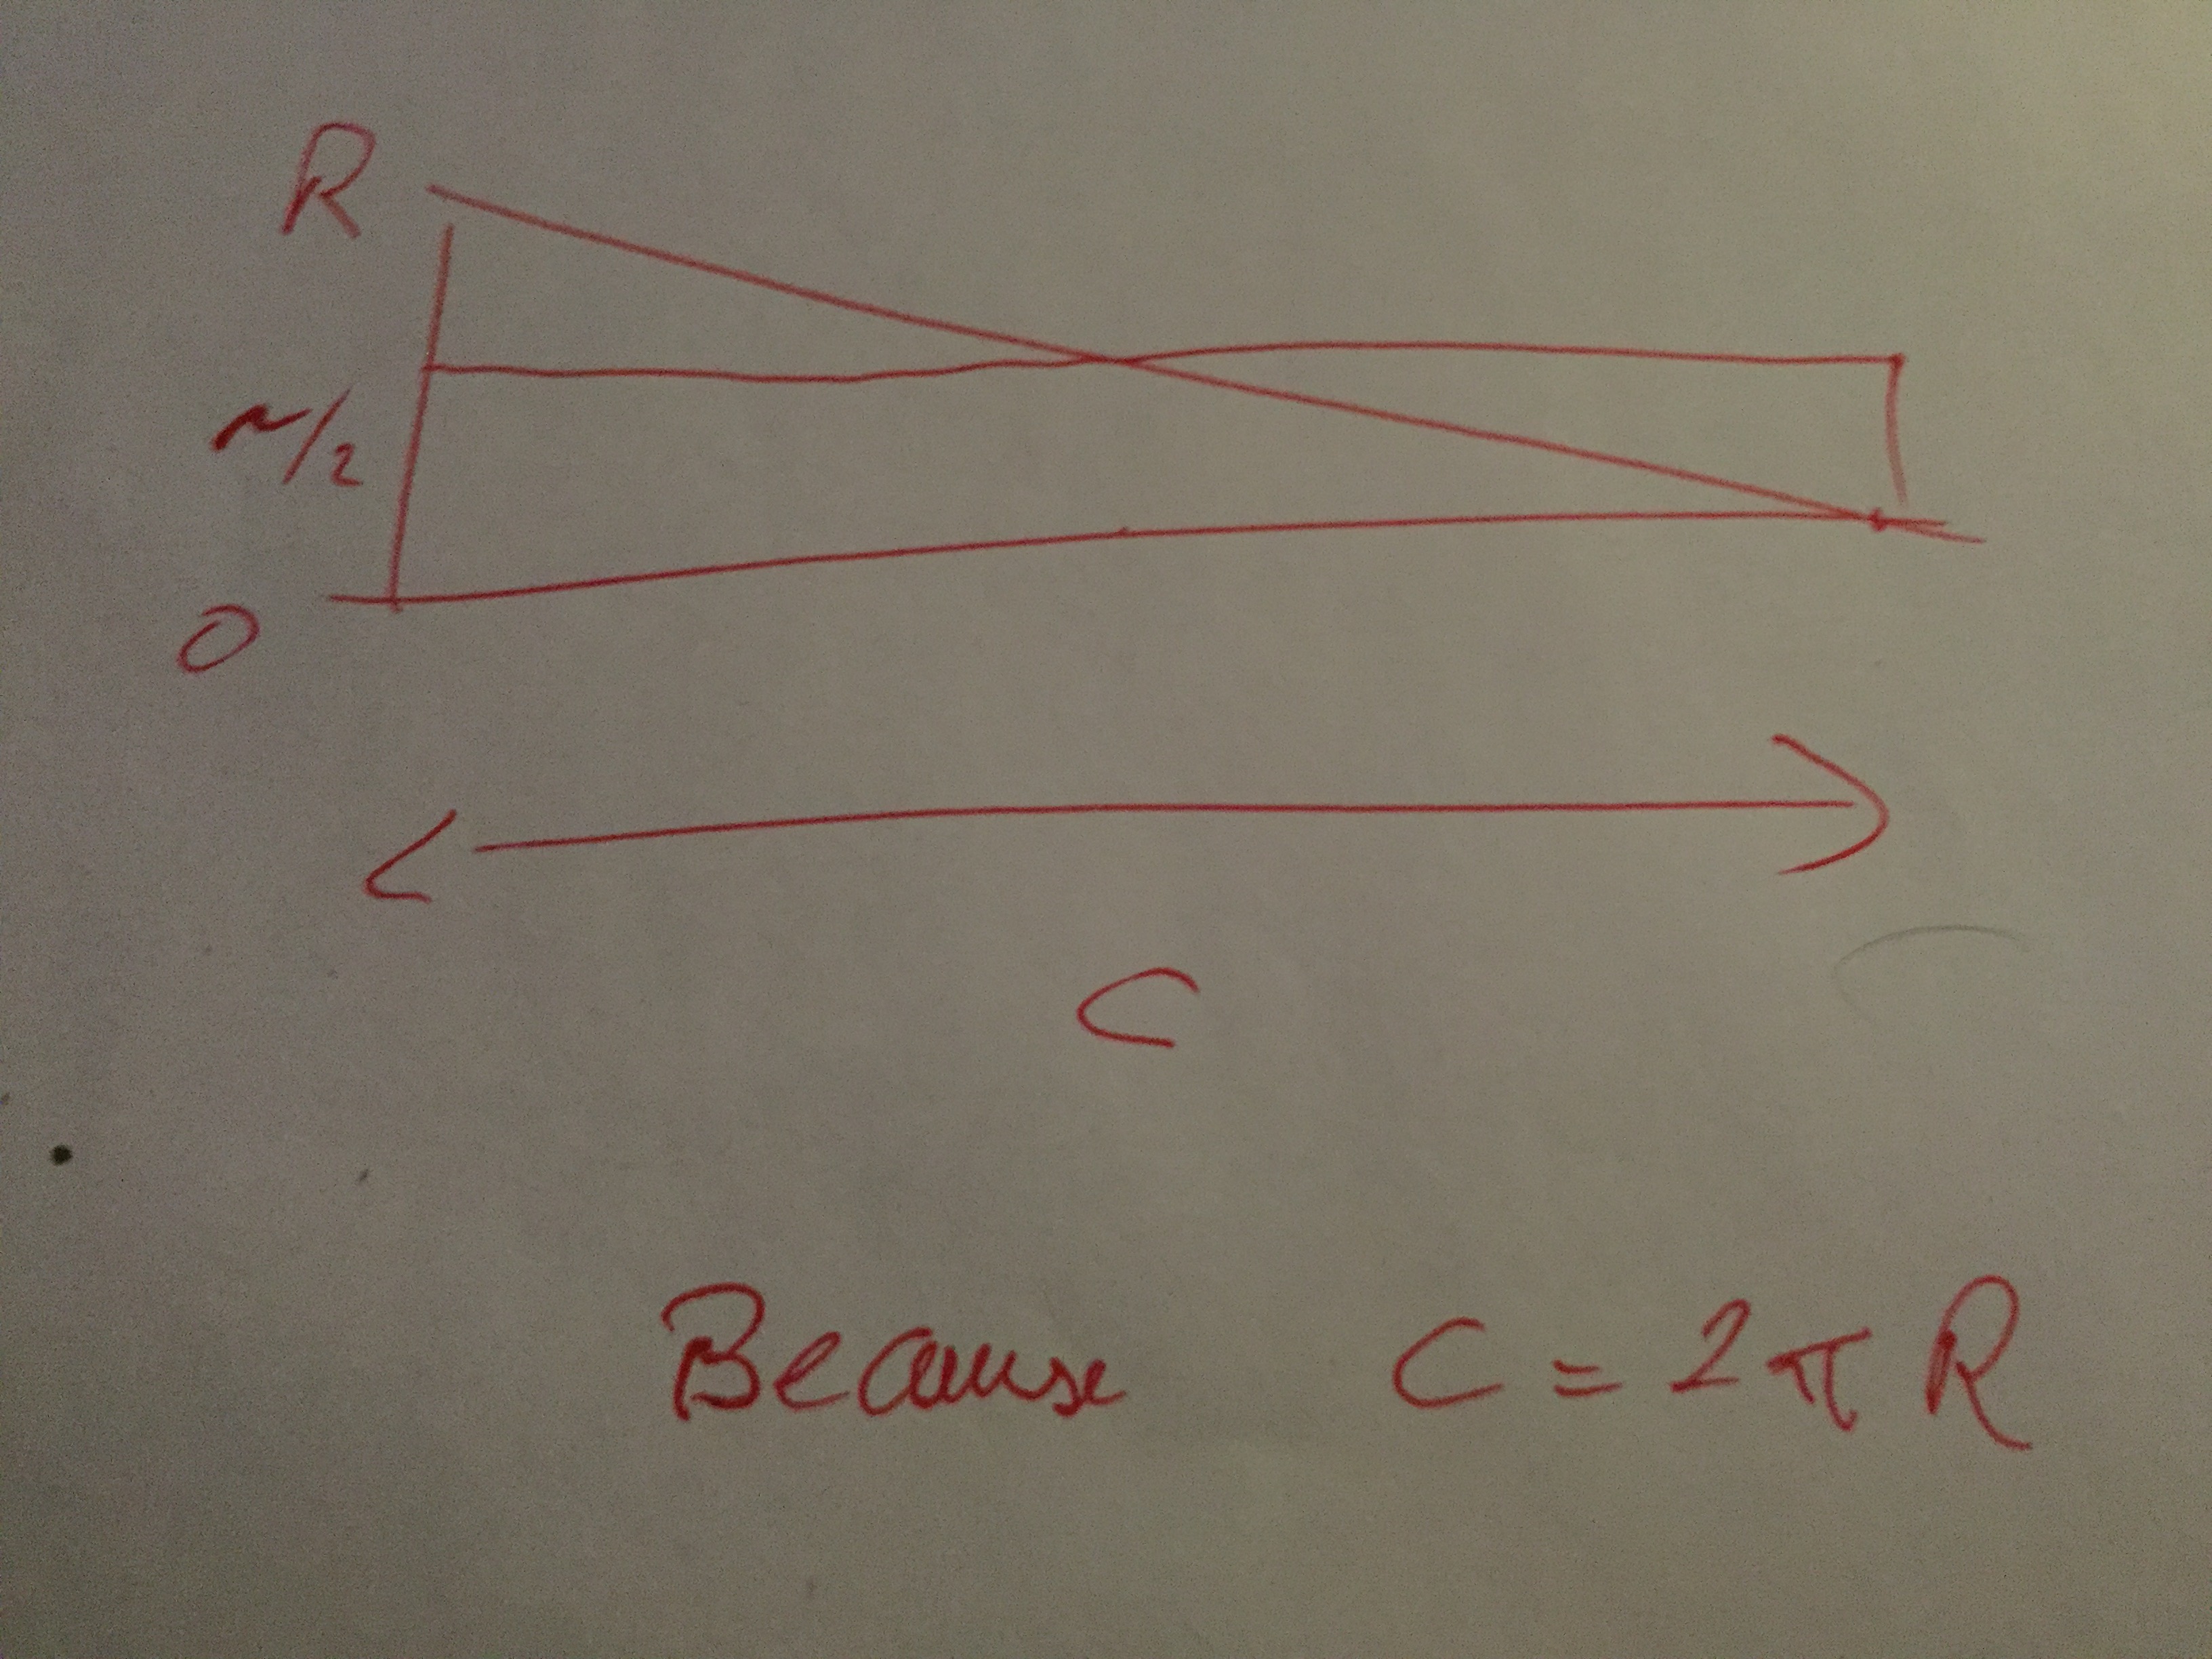 R
r/2
O
C
Because C = 2πR